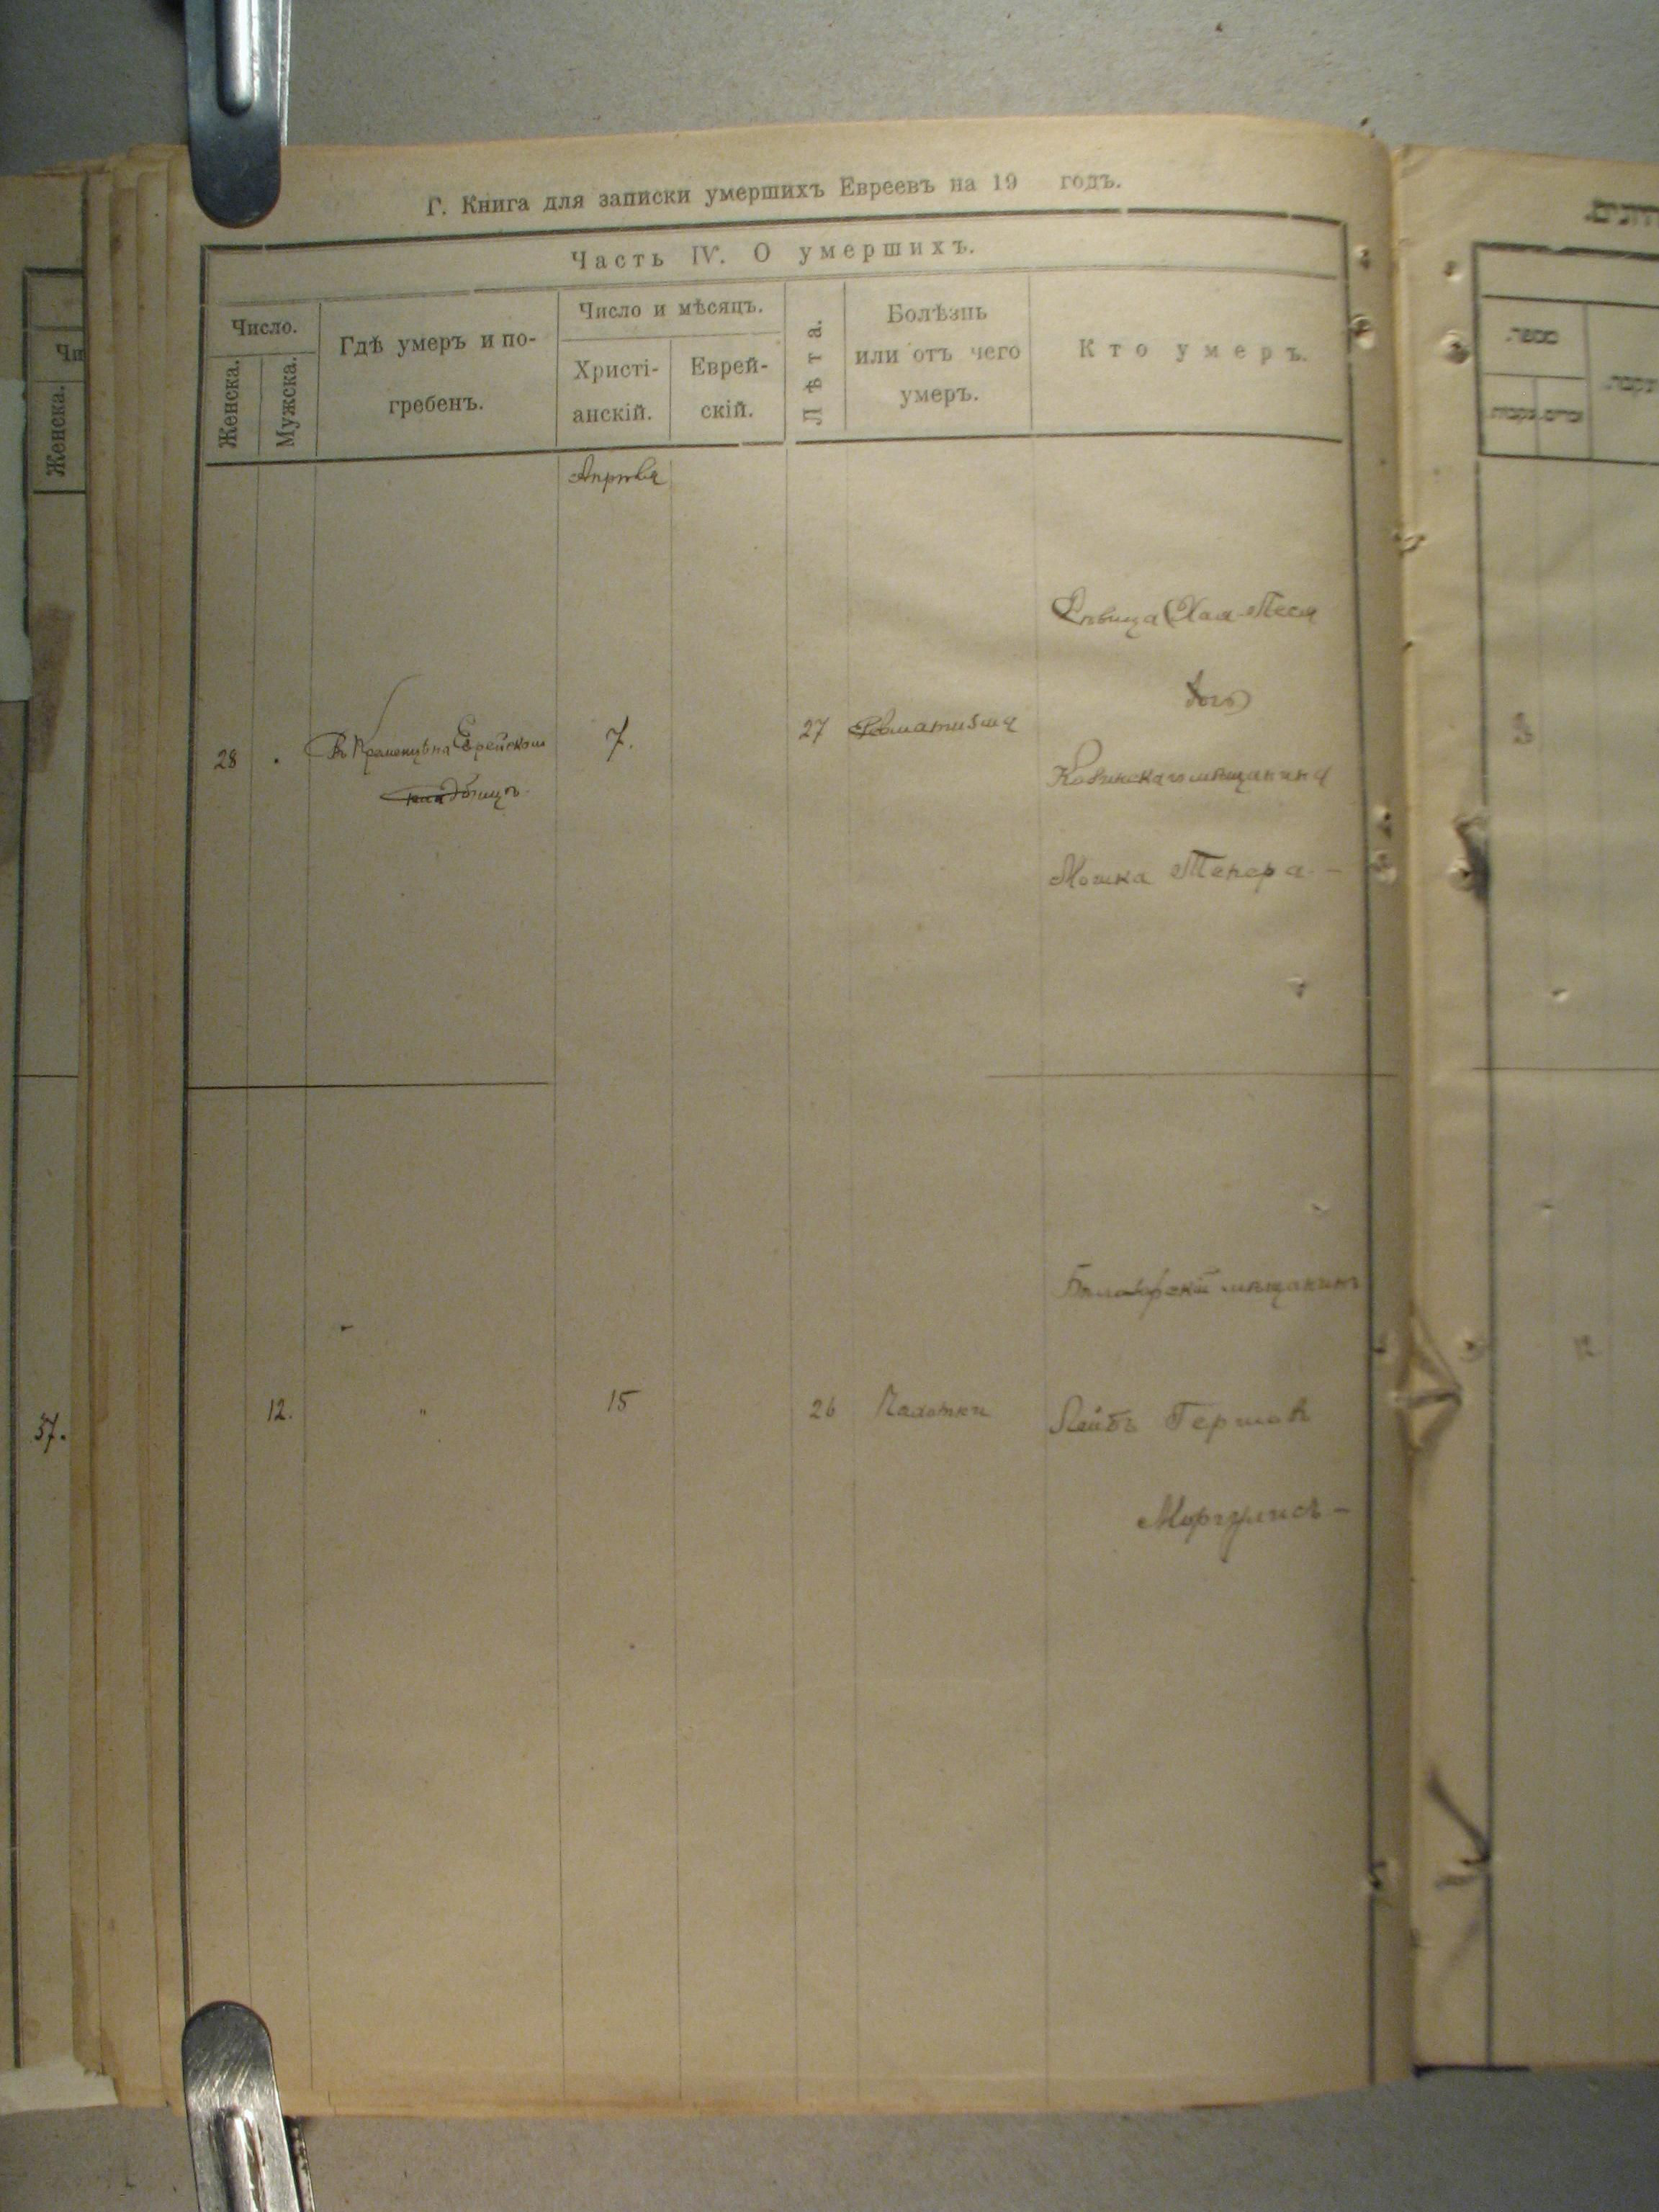 Г. Книга для записки умершихъ Евреевъ на 19 годъ.
Часть IV. О умершихъ.
Число.
Женска.
Мужска.
Гдѣ умеръ и по-
гребенъ.
Число и мѣсяцъ.
Христі-
анскій.
Еврей-
скій.
Лѣта.
Болѣзнь
или отъ чего
умеръ.
Кто умеръ.
Апрѣля
28
Въ Кременцѣ на Еврейском
кладбищѣ
7.
27
Ревматизма
Дѣвица Хая-Песя
дочь
мѣщанина
Мошка Тепера -
12.
"
15
26
Чахотки
мѣщанинъ
Лейбъ Гершов
Моргулисъ -
Чи
Женска.
37.
מספר.